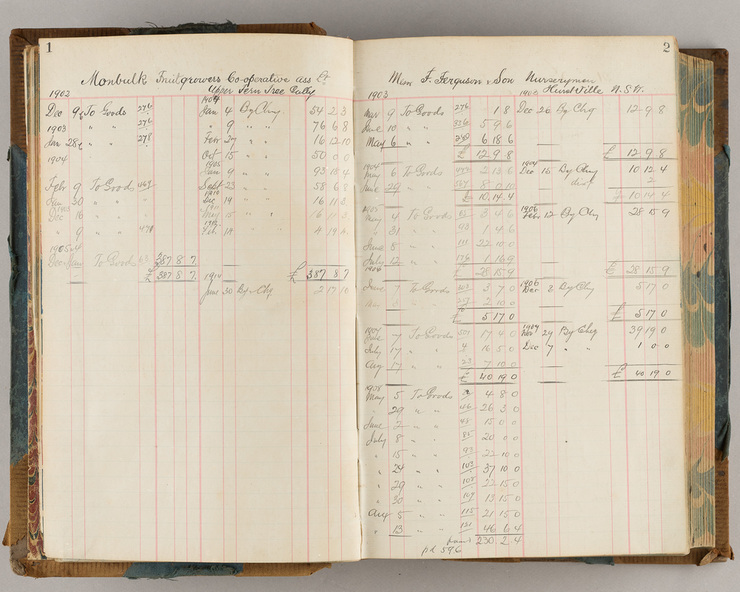 1
Monbulk Fruitgrowers Co-operative ass Lt
Upper Fern Tree Gully
1902
1904
Dec 9 To Goods 276 Jan 4 By Chq 54 2 3
1903 " " 276 " 9 " 76 6 8
Jan 28 " " 278 Feb 27 " 16 12 10
1904 Oct 15 " 50 0 0
1905
Jan 9 " 93 18 4
Feb 9 To Goods Sept 23 " 58 6 8
Jan 30 " " Dec 19 " 16 11 3
Dec 16 " " May 15 " 16 11 3
" 9 " " 478
1905-4
To Goods 387 8 7
£ 387 8 7 £ 387 8 7
1910
June 30 By Chq 2 17 10
2
Messrs F. Ferguson & Son Nurserymen
Hurstville N.S.W.
1903
1903
Mar 9 To Goods 276 1 8 Dec 26 By Chq 12 9 8
June 10 " " 5 9 6
May 6 " " 6 18 6
£ 12 9 8 £ 12 9 8
1904 1904
May 6 To Goods 2 13 6 Dec 15 By Chq 10 12 4
June 29 " " 8 0 10 disc 2
£ 10 14 4 £ 10 14 4
1905 1906
May 4 To Goods 3 4 6 Feb 12 By Chq 28 15 9
" 31 " " 93 1 4 6
June 8 " " 22 10 0
July 12 " " 1 16 9
£ 28 15 9 £ 28 15 9
1906 1906
June 7 To Goods 3 7 0 Dec 2 By Chq 5 17 0
2 10 0
£ 5 17 0 £ 5 17 0
1907 1907
June 7 To Goods 17 4 0 Nov 29 By Chq 39 19 0
July 17 " " 9 16 5 0 Dec 7 " " 1 0 0
Aug 17 " " 23 7 10 0
£ 40 19 0 £ 40 19 0
1908
May 5 To Goods 4 8 0
" 29 " " 46 26 3 0
June 2 " " 15 0 0
July 8 " " 85 20 0 0
" 15 " " 93 22 10 0
" 24 " " 103 37 10 0
" 29 " " 108 22 15 0
" 30 " " 109 13 15 0
Aug 5 " " 115 21 15 0
" 13 " " 121 46 6 4
forward 230 2 4
pd 596